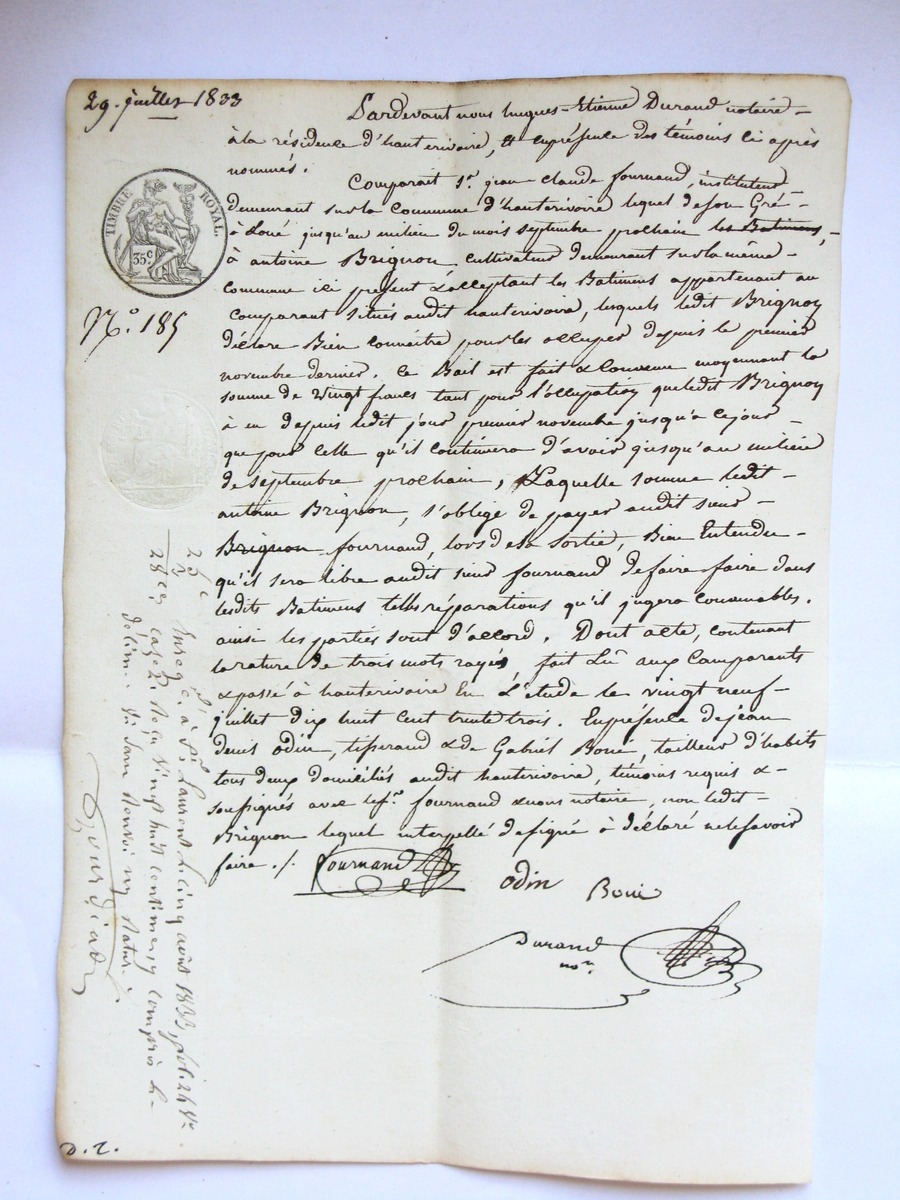 29. juillet 1833
Pardevant nous hugues-Etienne Durand notaire
à la résidence d'hauterivoire, & enprésence des témoins ci après
nommés.
Comparait Sr. jean claude fournand, instituteur
demeurant sur la Commune d'hauterivoire lequel deson Gré
à Loué jusqu'au milieu du mois septembre prochain les Batimens,
à antoine Brignon cultivateur demeurant sur la même
commune ici présent & acceptant les Batimens appartenant au
comparant situés audit hauterivoire, lesquels ledit Brignon
déclare Bien connaître pour les occuper depuis le premier
novembre dernier. Ce Bail est fait & Convenu moyennant la
somme de vingt francs tant pour l'occupation queledit Brignon
à eu depuis ledit jour premier novembre jusqu'a cejour
que pour celle qu'il continuera d'avoir jusqu'au milieu
de septembre prochain, Laquelle somme ledit
antoine Brignon, s'oblige de payer audit sieur
Brignon fournand, lors desa Sortie, Bien Entendu
qu'il sera libre audit sieur fournand defaire faire dans
lesdits Batimens telles réparations qu'il jugera convenables.
ainsi les parties sont d'accord. Dont acte, contenant
la rature de trois mots rayés, fait Lû aux Comparants
& passé à hauterivoire En L'étude le vingt neuf
juillet dix huit cent trente trois. Enprésence dejean
denis odin, tisserand & de Gabriel Boue, tailleur d'habits
tous deux domiciliés audit hauterivoire, témoins requis &
soussignés avec ledt Sr. fournand & nous notaire, non ledit
Brignon lequel interpellé designé à déclaré nelesavoir
faire ./.
fournand
odin
Boue
Durand
nore
TIMBRE ROYAL.
35 c
No. 185
25 c
28 c
Enregé. à St. Laurent le cinq août 1833, fol. 24 vo
case 2. Reçu vingt huit centimes compris le
décime. sans renvoi ni ratur.
D. 2.